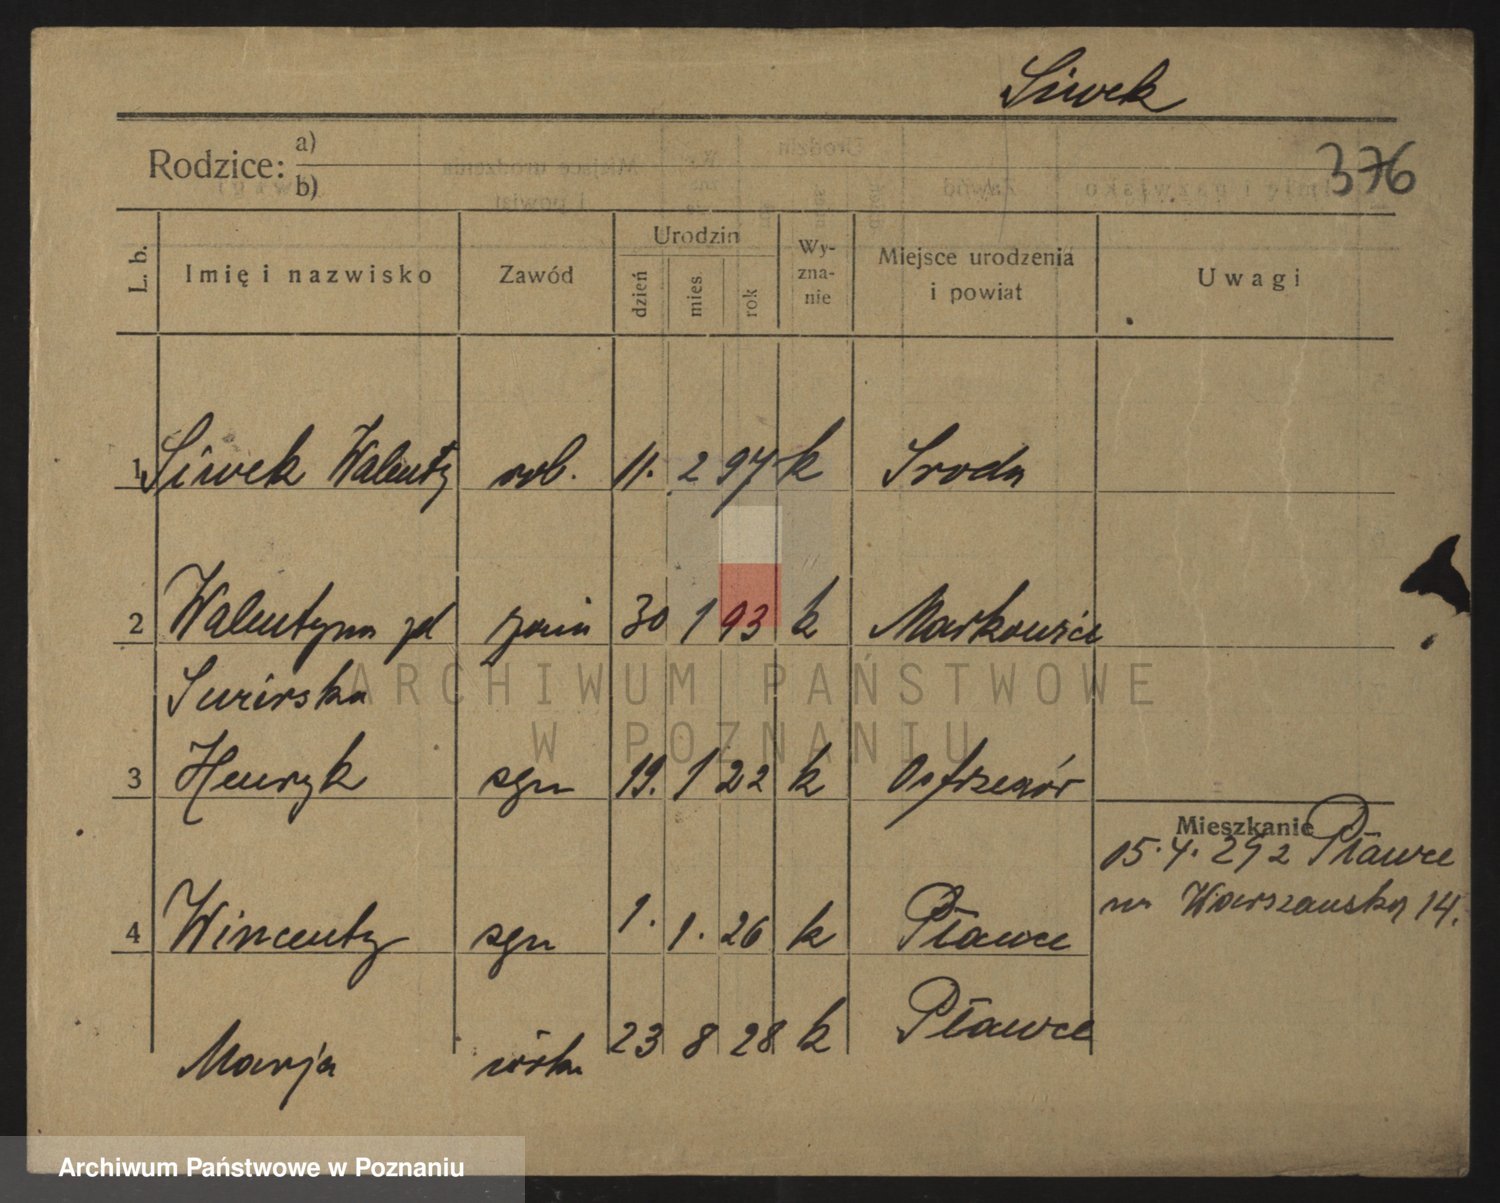 Siwek
376
Rodzice: a)
b)
L. b. Imię i nazwisko Zawód Urodzin dzień mies. rok Wy-zna-nie Miejsce urodzenia i powiat Uwagi
1 Siwek Walenty rob. 11. 2 97 k Sroda
2 Walentyna zd 30 1 93 k Markowice
3 Henryk syn 19. 1 22 k
Mieszkanie
15. 4. 29 z Pławce
na Warszawską 14.
4 Wincenty syn 1. 1. 26 k Pławce
Marja 23 8 28 k Pławce
ARCHIWUM PAŃSTWOWE
W POZNANIU
Archiwum Państwowe w Poznaniu